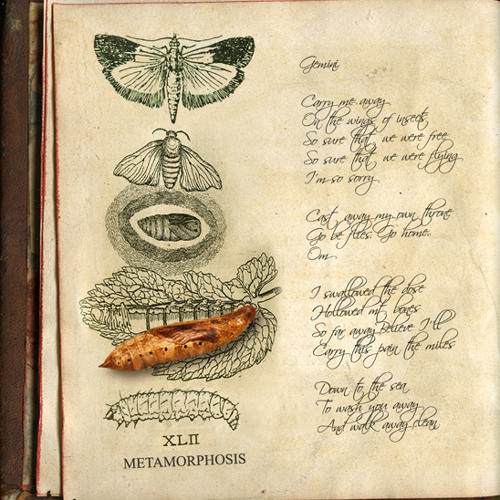 Gemini
Carry me away
On the wings of insects
So sure that we were free
So sure that we were flying
I'm so sorry
Cast away my own throne
Go be flies. Go home.
Om
I swallowed the dose
Hollowed mt bones
So far away Believe I'll
Carry this pain the miles
Down to the sea
To wash you away
And walk away clean
XLII
METAMORPHOSIS